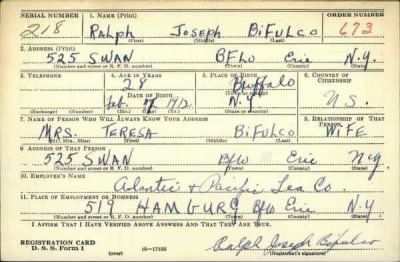 SERIAL NUMBER 1. NAME (Print) ORDER NUMBER
218 RALPH JOSEPH BIFULCO 673
(First) (Middle) (Last)
2. ADDRESS (Print)
525 SWAN BFLO Erie N.Y.
(Number and street or R. F. D. number) (Town) (County) (State)
3. TELEPHONE 4. AGE IN YEARS 5. PLACE OF BIRTH 6. COUNTRY OF CITIZENSHIP
28 Buffalo
DATE OF BIRTH (Town or county)
Feb. 1912 N.Y U.S.
(Exchange) (Number) (Mo.) (Day) (Yr.) (State or country)
7. NAME OF PERSON WHO WILL ALWAYS KNOW YOUR ADDRESS 8. RELATIONSHIP OF THAT PERSON
MRS. TERESA BIFULCO WIFE
(Mr., Mrs., Miss) (First) (Middle) (Last)
9. ADDRESS OF THAT PERSON
525 SWAN Bflo Erie N.Y
(Number and street or R. F. D. number) (Town) (County) (State)
10. EMPLOYER'S NAME
Atlantic & Pacific Tea Co.
11. PLACE OF EMPLOYMENT OR BUSINESS
519 HAMBURG Bflo Erie N.Y
(Number and street or R. F. D. number) (Town) (County) (State)
I AFFIRM THAT I HAVE VERIFIED ABOVE ANSWERS AND THAT THEY ARE TRUE.
REGISTRATION CARD
D. S. S. Form 1 (over) 16—17105
Ralph Joseph Bifulco
(Registrant's signature)